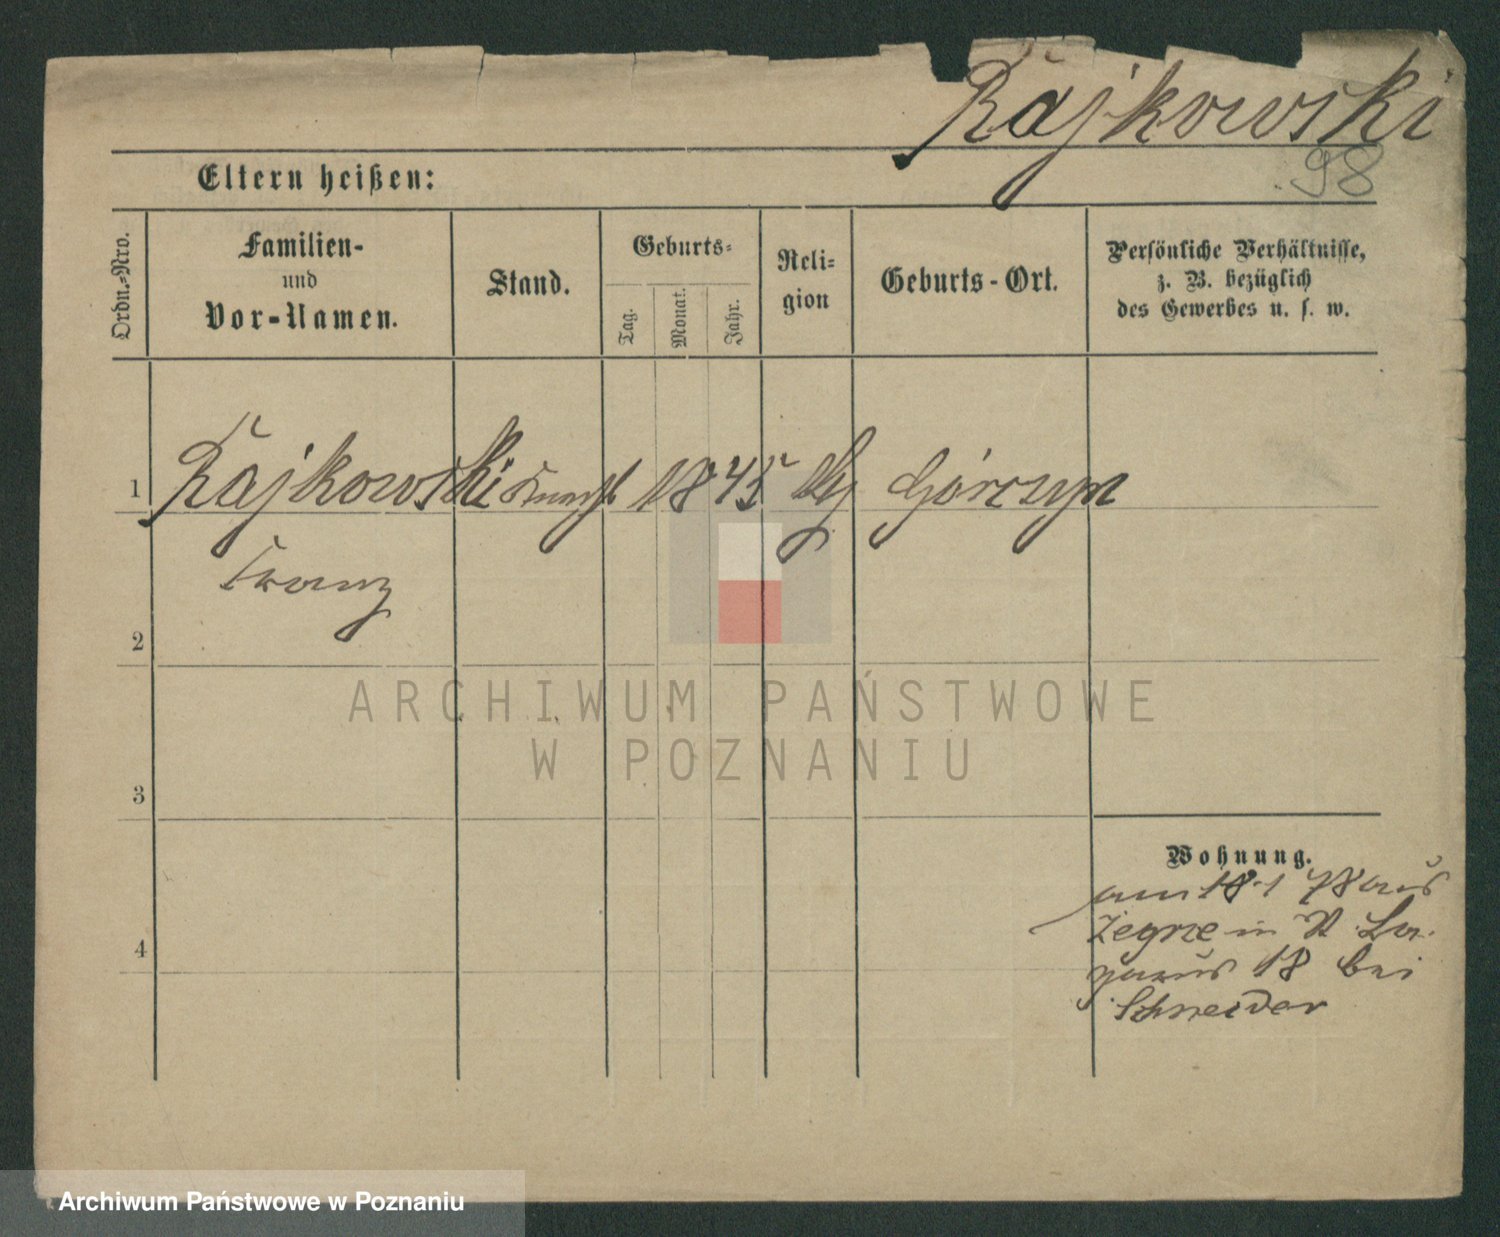 Rajkowski
98
Eltern heißen:
Ordn.-Nro.
Familien-
und
Vor-Namen.
Stand.
Geburts-
Tag.
Monat.
Jahr.
Reli-
gion
Geburts-Ort.
Persönliche Verhältnisse,
z. B. bezüglich
des Gewerbes u. s. w.
1 Rajkowski Knecht 1845 Górczyn
Franz
2
3
4
Wohnung.
am 18·1 78 aus
Zegrze in St. La-
zarus 18 bei
Schneider
ARCHIWUM PAŃSTWOWE
W POZNANIU
Archiwum Państwowe w Poznaniu